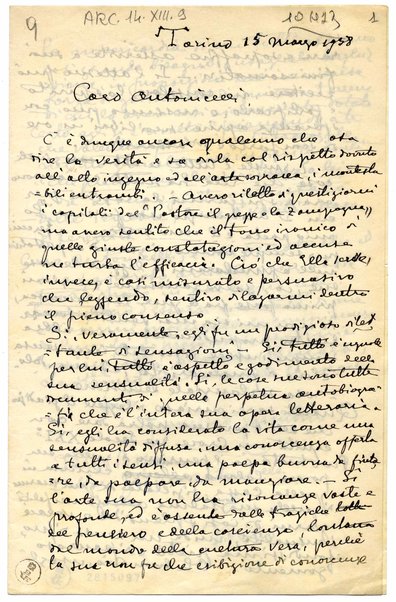 9
ARC. 14. XIII. 9
1
Torino 15 marzo 1938
Caro Antonicelli,
C'è dunque ancora qualcuno che osa
dire la verità e sa dirla col rispetto dovuto
all'alto ingegno ed all'arte sovrana, incontesta
=bili entrambi. — Avevo riletto di questi giorni
i capitali del "Pastore il gregge e la zampogna"
ma avevo sentito che il tono ironico di
quelle giuste constatazioni ed accuse
ne turba l'efficacia. Ciò che Ella scrive
invece, è così misurato e persuasivo
che leggendo, sentivo dilagarmi dentro
il pieno consenso
Sì, veramente, egli fu un prodigioso dilet
=tante di sensazioni — Sì, tutto è uguale
per lui tutto è aspetto e godimento della
sua sensualità. Sì, le cose sue sono tutte
documenti di quella perpetua autobiogra
=fia che è l'intera sua opera letteraria.
Sì, egli ha considerato la vita come una
sensualità diffusa, una conoscenza offerta
a tutti i sensi, una polpa buona da fiuta
=re, da palpare, da mangiare. — Sì
l'arte sua non ha risonanze vaste e
profonde, ed è assente dalle tragiche lotte
del pensiero e della coscienza, lontana
dal mondo della cultura vera, perchè
la sua non fu che esibizione di conoscenze